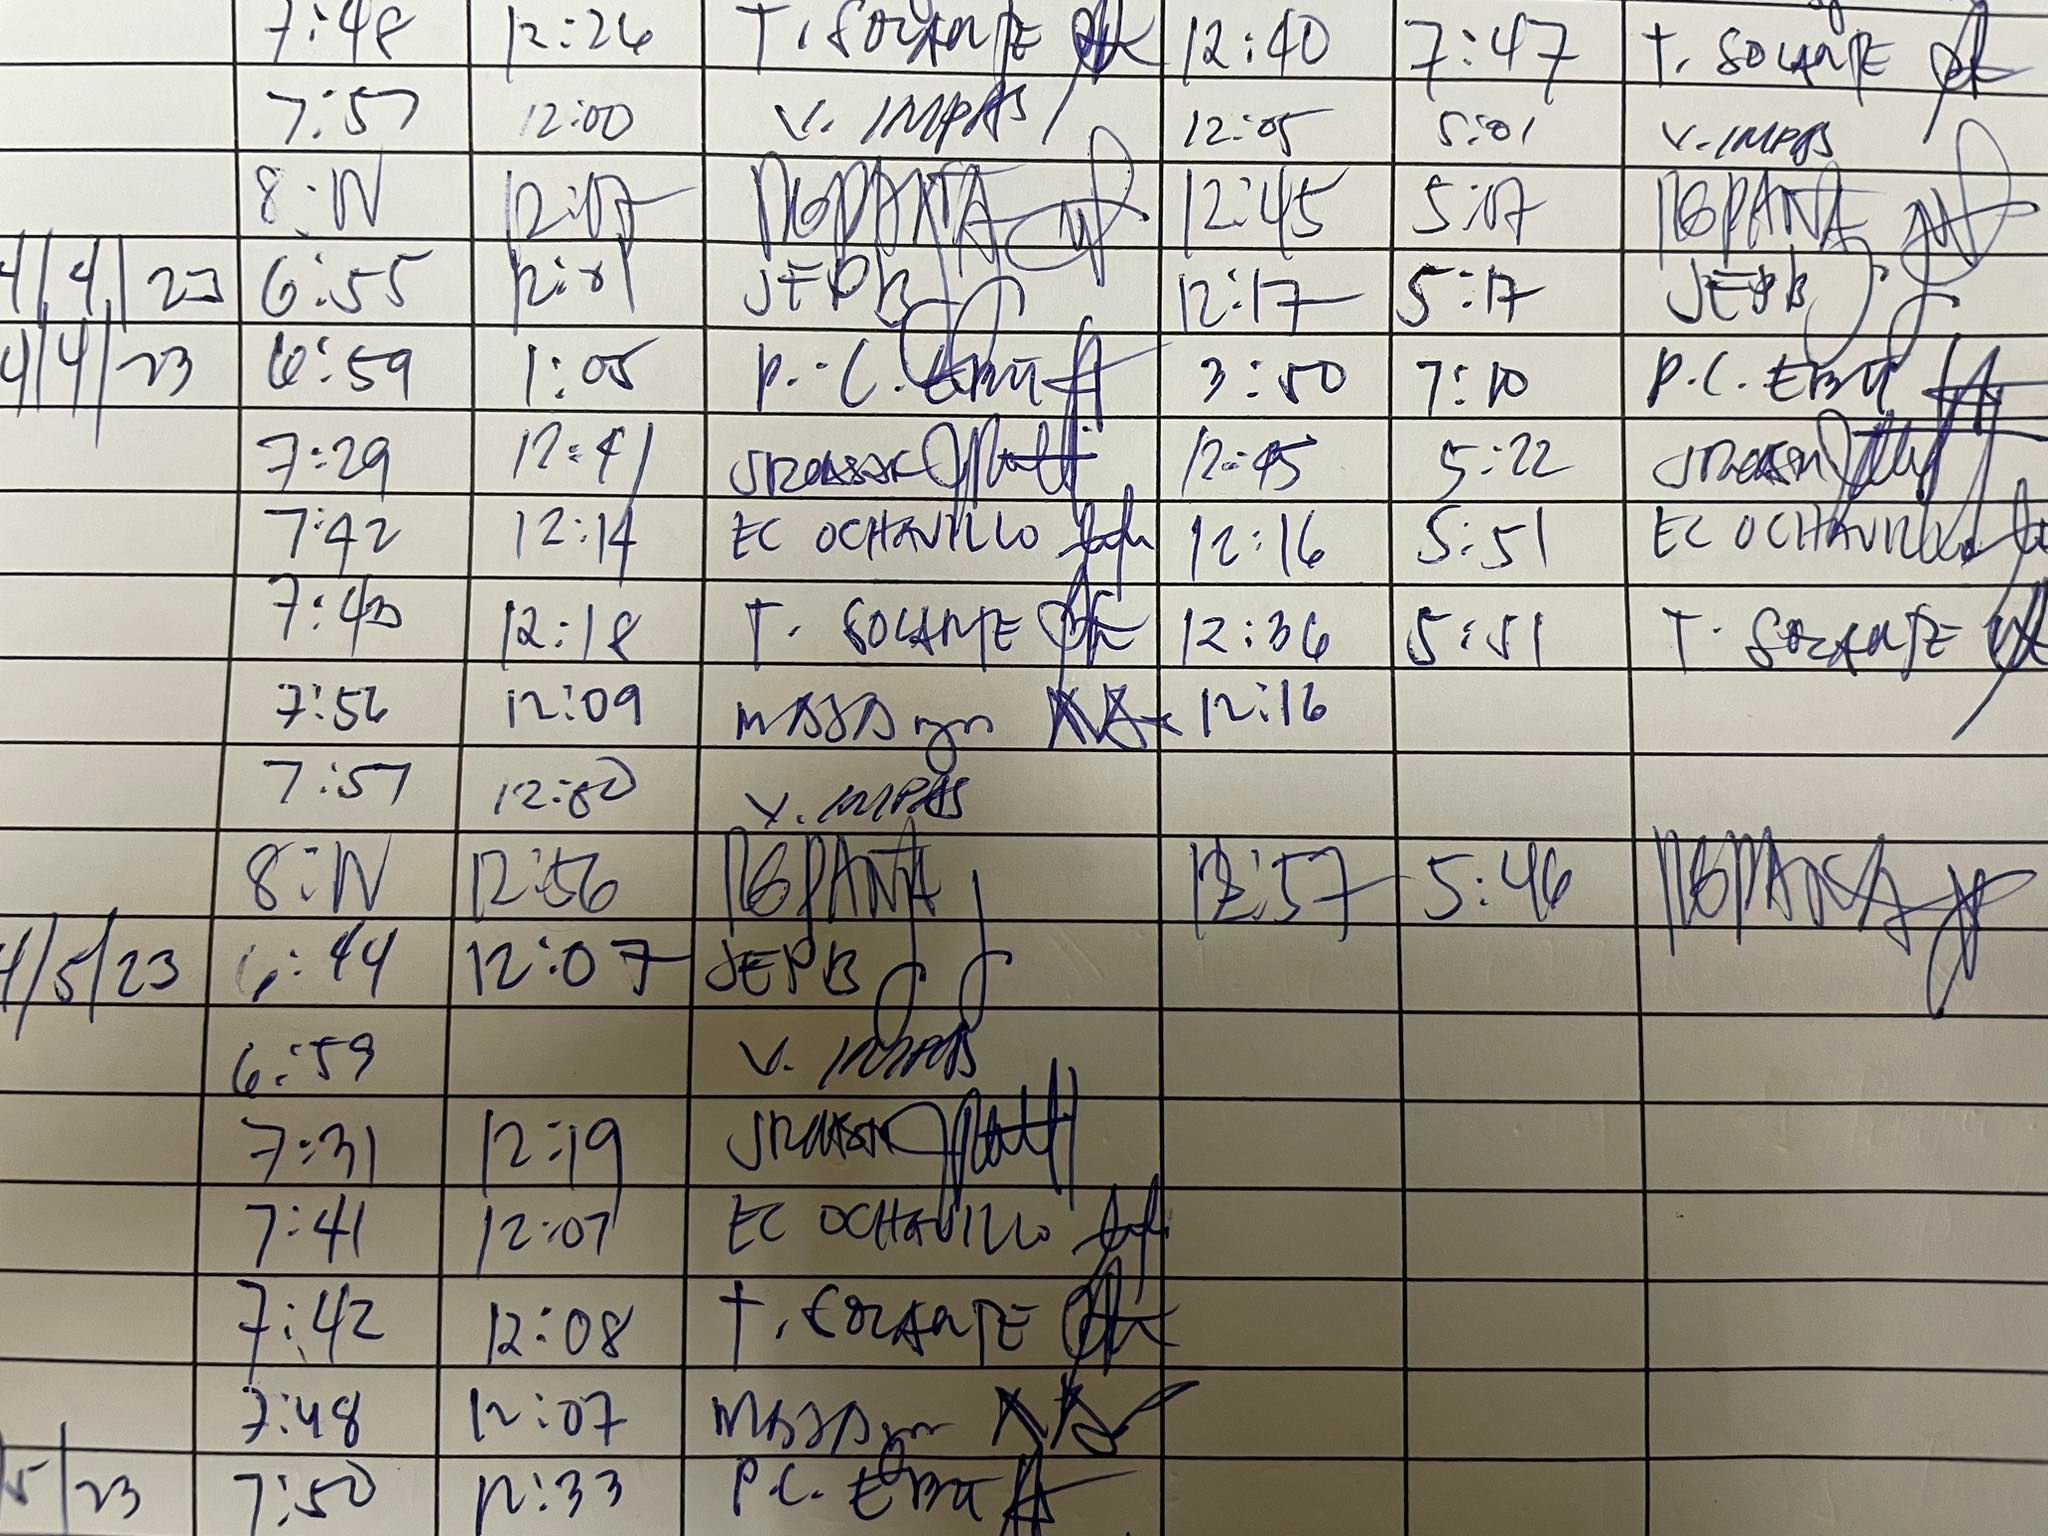 7:48 12:26 T. SOLANTE 12:40 7:47 T. SOLANTE
7:57 12:00 V. IMPAS 12:05 5:01 V. IMPAS
12:17 12:45 5:17
4/4/23 6:55 12:01 JEPB 12:17 5:17 JEPB
4/4/23 6:59 1:05 P.C. EBU 3:50 7:10 P.C. EBU
7:29 12:41 12:45 5:22
7:42 12:14 EC OCHAVILLO 12:16 5:51 EC OCHAVILLO
7:43 12:18 T. SOLANTE 12:36 5:51 T. SOLANTE
7:56 12:09 12:16
7:57 12:00 V. IMPAS
12:56 12:57 5:46
4/5/23 6:44 12:07 JEPB
6:59 V. IMPAS
7:31 12:19
7:41 12:07 EC OCHAVILLO
7:42 12:08 T. SOLANTE
7:48 12:07
/5/23 7:50 12:33 P.C. EBU